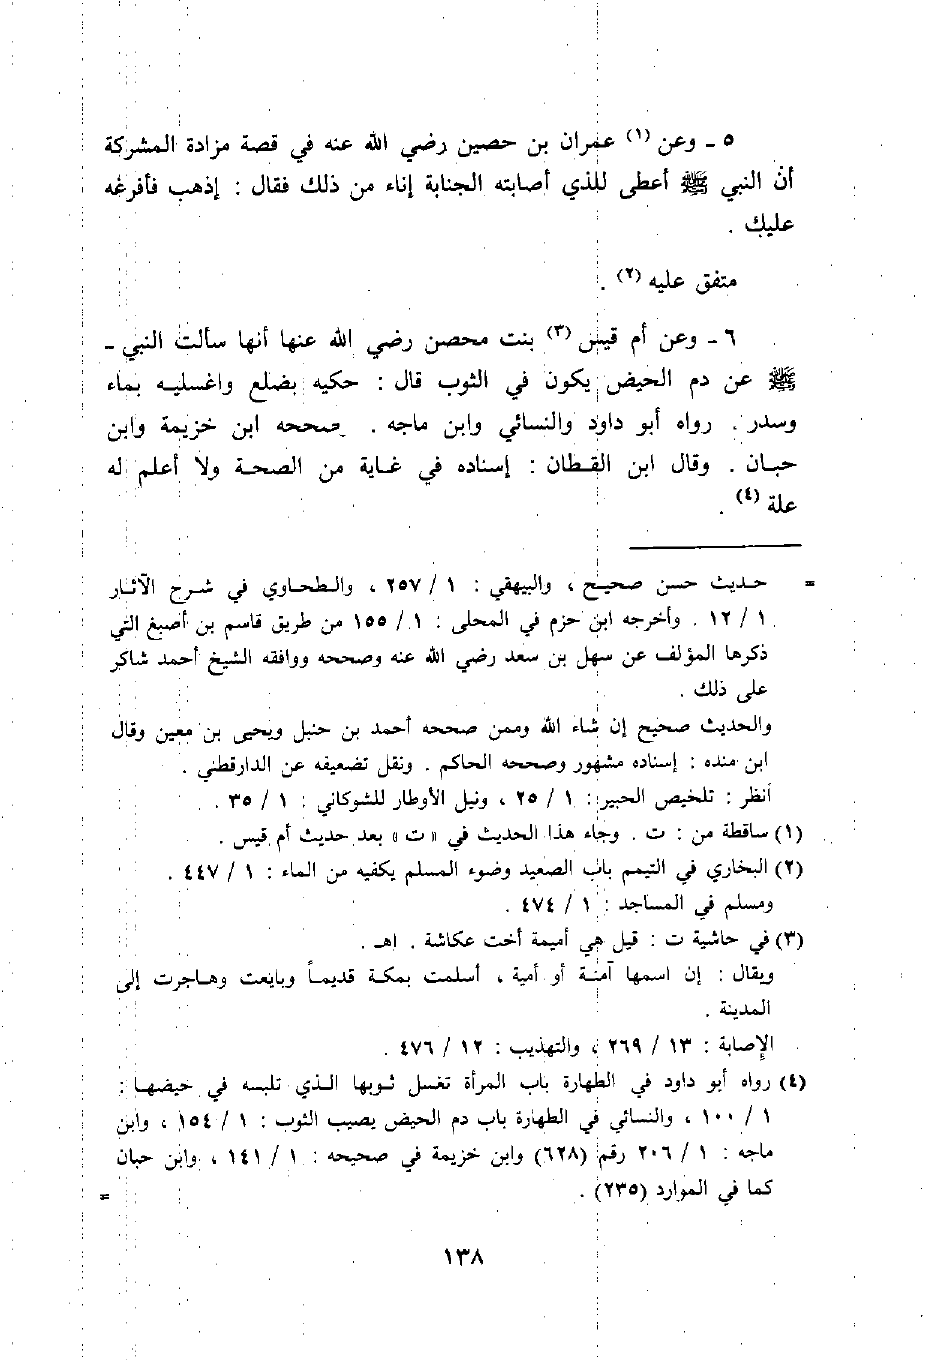 ٥ ـ وعن (١) عمران بن حصين رضي الله عنه في قصة مزادة المشركة
أنّ النبي ﷺ أعطى للذي أصابته الجنابة إناء من ذلك فقال : إذهب فأفرغه
عليك .
متفق عليه (٢) .
٦ ـ وعن أم قيس (٣) بنت محصن رضي الله عنها أنها سألت النبي ـ
ﷺ عن دم الحيض يكون في الثوب قال : حكيه بضلع واغسليه بماء
وسدر . رواه أبو داود والنسائي وابن ماجه . صححه ابن خزيمة وابن
حبان . وقال ابن القطان : إسناده في غاية من الصحة ولا أعلم له
علة (٤) .
= حديث حسن صحيح ، والبيهقي : ١ / ٢٥٧ ، والطحاوي في شرح الآثار
١ / ١٢ . وأخرجه ابن حزم في المحلى : ١ / ١٥٥ من طريق قاسم بن أصبغ التي
ذكرها المؤلف عن سهل بن سعد رضي الله عنه وصححه ووافقه الشيخ أحمد شاكر
على ذلك .
والحديث صحيح إن شاء الله وممن صححه أحمد بن حنبل ويحيى بن معين وقال
ابن منده : إسناده مشهور وصححه الحاكم . ونقل تضعيفه عن الدارقطني .
أنظر : تلخيص الحبير : ١ / ٢٥ ، ونيل الأوطار للشوكاني : ١ / ٣٥ .
(١) ساقطة من : ت . وجاء هذا الحديث في « ت » بعد حديث أم قيس .
(٢) البخاري في التيمم باب الصعيد وضوء المسلم يكفيه من الماء : ١ / ٤٤٧ .
ومسلم في المساجد : ١ / ٤٧٤ .
(٣) في حاشية ت : قيل هي أميمة أخت عكاشة . اهـ .
ويقال : إن اسمها آمنة أو أمية ، أسلمت بمكة قديماً وبايعت وهاجرت إلى
المدينة .
الإصابة : ١٣ / ٢٦٩ ، والتهذيب : ١٢ / ٤٧٦ .
(٤) رواه أبو داود في الطهارة باب المرأة تغسل ثوبها الذي تلبسه في حيضها :
١ / ١٠٠ ، والنسائي في الطهارة باب دم الحيض يصيب الثوب : ١ / ١٥٤ ، وابن
ماجه : ١ / ٢٠٦ رقم (٦٢٨) وابن خزيمة في صحيحه : ١ / ١٤١ ، وابن حبان
كما في الموارد (٢٣٥) . =
١٣٨